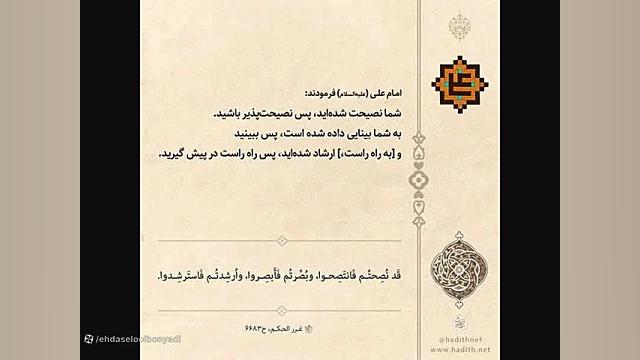 امام علی (علیه‌السلام) فرمودند:
شما نصیحت شده‌اید، پس نصیحت‌پذیر باشید.
به شما بینایی داده شده است، پس ببینید
و [به راه راست،] ارشاد شده‌اید، پس راه راست در پیش گیرید.
قَد نُصِحتُـم فَانتَصِحـوا، وبُصِّرتُم فَأَبصِـروا، واُرشِدتُـم فَاستَرشِـدوا.
غرر الحکم، ح۶۶۸۳
@hadithnet
www.hadith.net
/ehdaseloolbonyadi